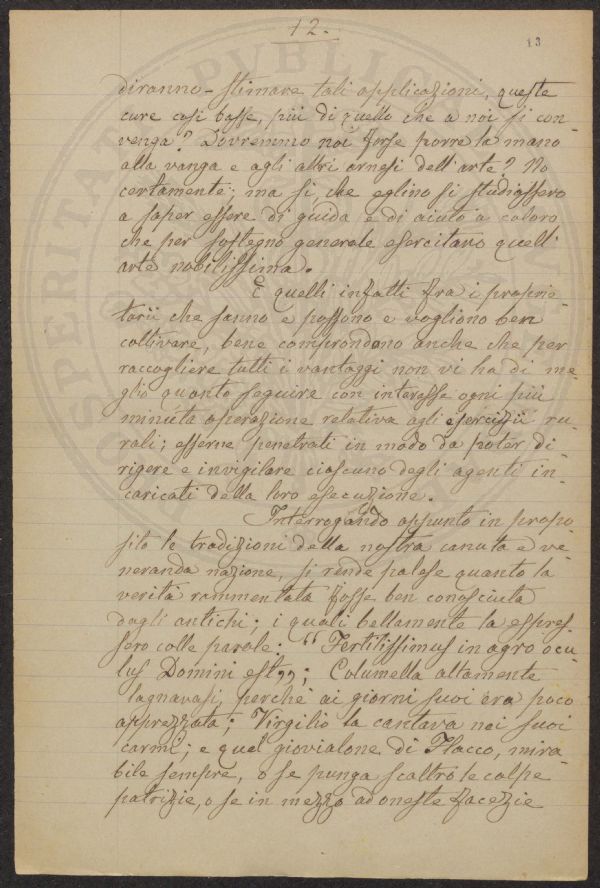 12.
13
diranno - stimare tali applicazioni, queste
cure così basse, più di quello che a noi si con-
venga? Dovremmo noi forse porre la mano
alla vanga e agli altri arnesi dell'arte? No
certamente; ma sì, che eglino si studiassero
a saper essere di guida e di aiuto a coloro
che per sostegno generale esercitano quell'
arte nobilissima.
E quelli infatti fra i proprie-
tarii che sanno e possono e vogliono ben
coltivare, bene comprendono anche che per
raccogliere tutti i vantaggi non vi ha di me-
glio quanto seguire con interesse ogni più
minuta operazione relativa agli esercizii ru-
rali; esserne penetrati in modo da poter di-
rigere e invigilare ciascuno degli agenti in-
caricati della loro esecuzione.
Interrogando appunto in propo-
sito le tradizioni della nostra canuta e ve-
neranda nazione, si rende palese quanto la
verità rammentata fosse ben conosciuta
dagli antichi; i quali bellamente la espres-
sero colle parole: "Fertilissimus in agro ocu-
lus Domini est,,; Columella altamente
lagnavasi, perchè ai giorni suoi era poco
apprezzata; Virgilio la cantava nei suoi
carmi; e quel giovialone di Flacco, mira-
bile sempre, o se punga scaltro le colpe
patrizie, o se in mezzo ad oneste facezie